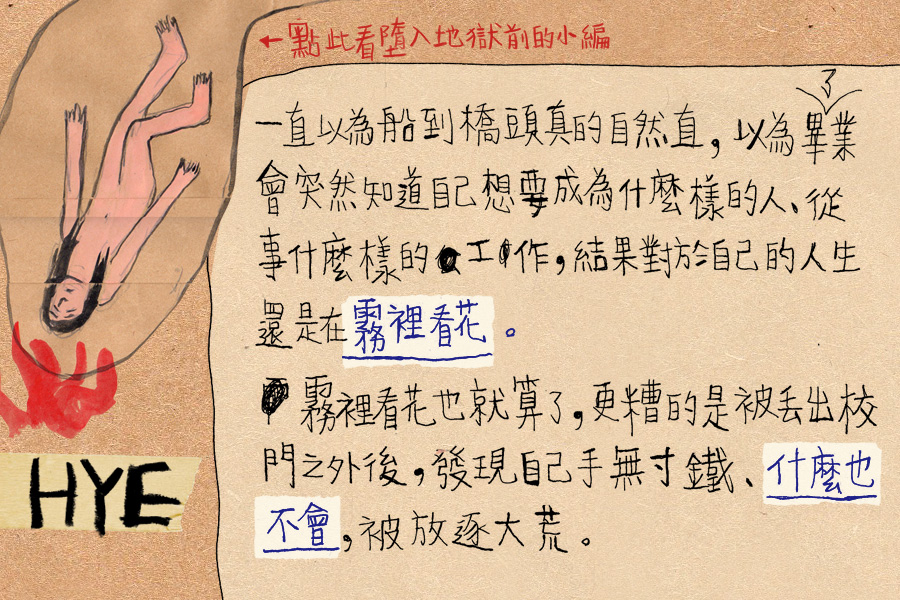 ←點此看墮入地獄前的小編
一直以為船到橋頭真的自然直，以為畢業了
會突然知道自己想要成為什麼樣的人、從
事什麼樣的工作，結果對於自己的人生
還是在霧裡看花。
霧裡看花也就算了，更糟的是被丟出校
門之外後，發現自己手無寸鐵、什麼也
不會，被放逐大荒。
HYE